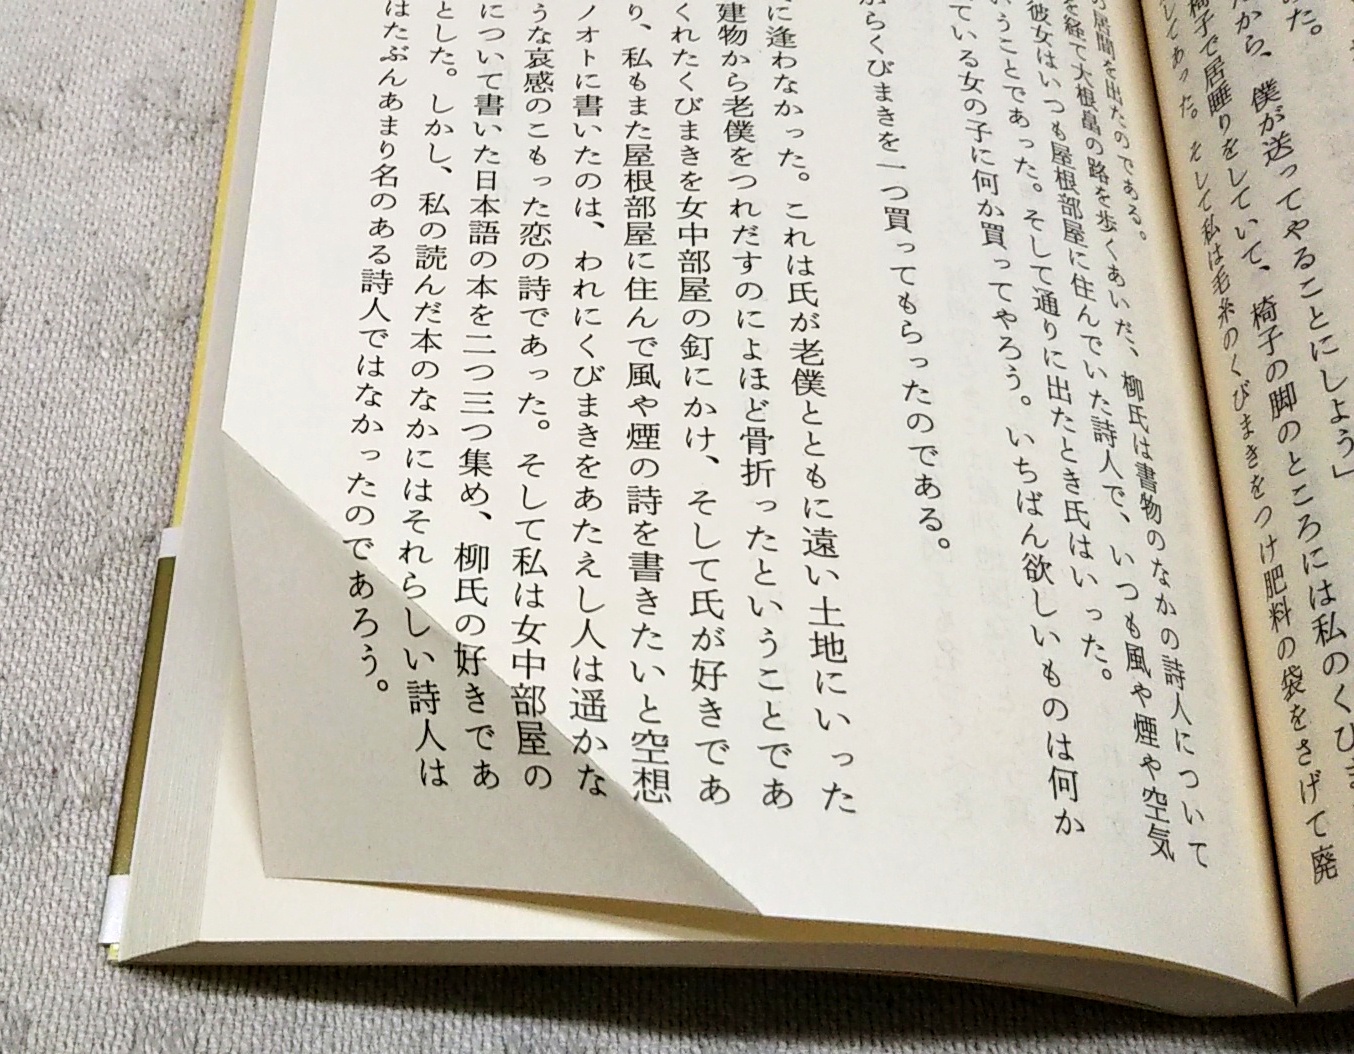 った。
だから、僕が送ってやることにしよう」
椅子で居睡りをしていて、椅子の脚のところには私のくびま
してあった。そして私は毛糸のくびまきをつけ肥料の袋をさげて廃
の居間を出たのである。
を経て大根畠の路を歩くあいだ、柳氏は書物のなかの詩人について
彼女はいつも屋根部屋に住んでいた詩人で、いつも風や煙や空気
いうことであった。そして通りに出たとき氏はいった。
ている女の子に何か買ってやろう。いちばん欲しいものは何か
からくびまきを一つ買ってもらったのである。
に逢わなかった。これは氏が老僕とともに遠い土地にいった
建物から老僕をつれだすのによほど骨折ったということであ
くれたくびまきを女中部屋の釘にかけ、そして氏が好きであ
り、私もまた屋根部屋に住んで風や煙の詩を書きたいと空想
ノオトに書いたのは、われにくびまきをあたえし人は遥かな
うな哀感のこもった恋の詩であった。そして私は女中部屋の
について書いた日本語の本を二つ三つ集め、柳氏の好きであ
とした。しかし、私の読んだ本のなかにはそれらしい詩人は
はたぶんあまり名のある詩人ではなかったのであろう。